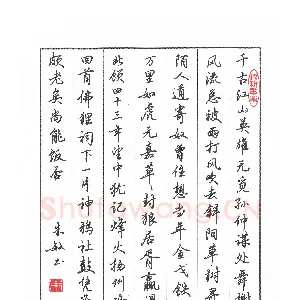 千古江山英雄无觅孙仲谋处舞榭
风流总被雨打风吹去斜阳草树寻
陌人道寄奴曾住想当年金戈铁
万里如虎元嘉草封狼居胥赢
北顾四十三年望中犹记烽火扬州路
回首佛狸祠下一片神鸦社鼓凭谁
颇老矣尚能饭否
朱敏书